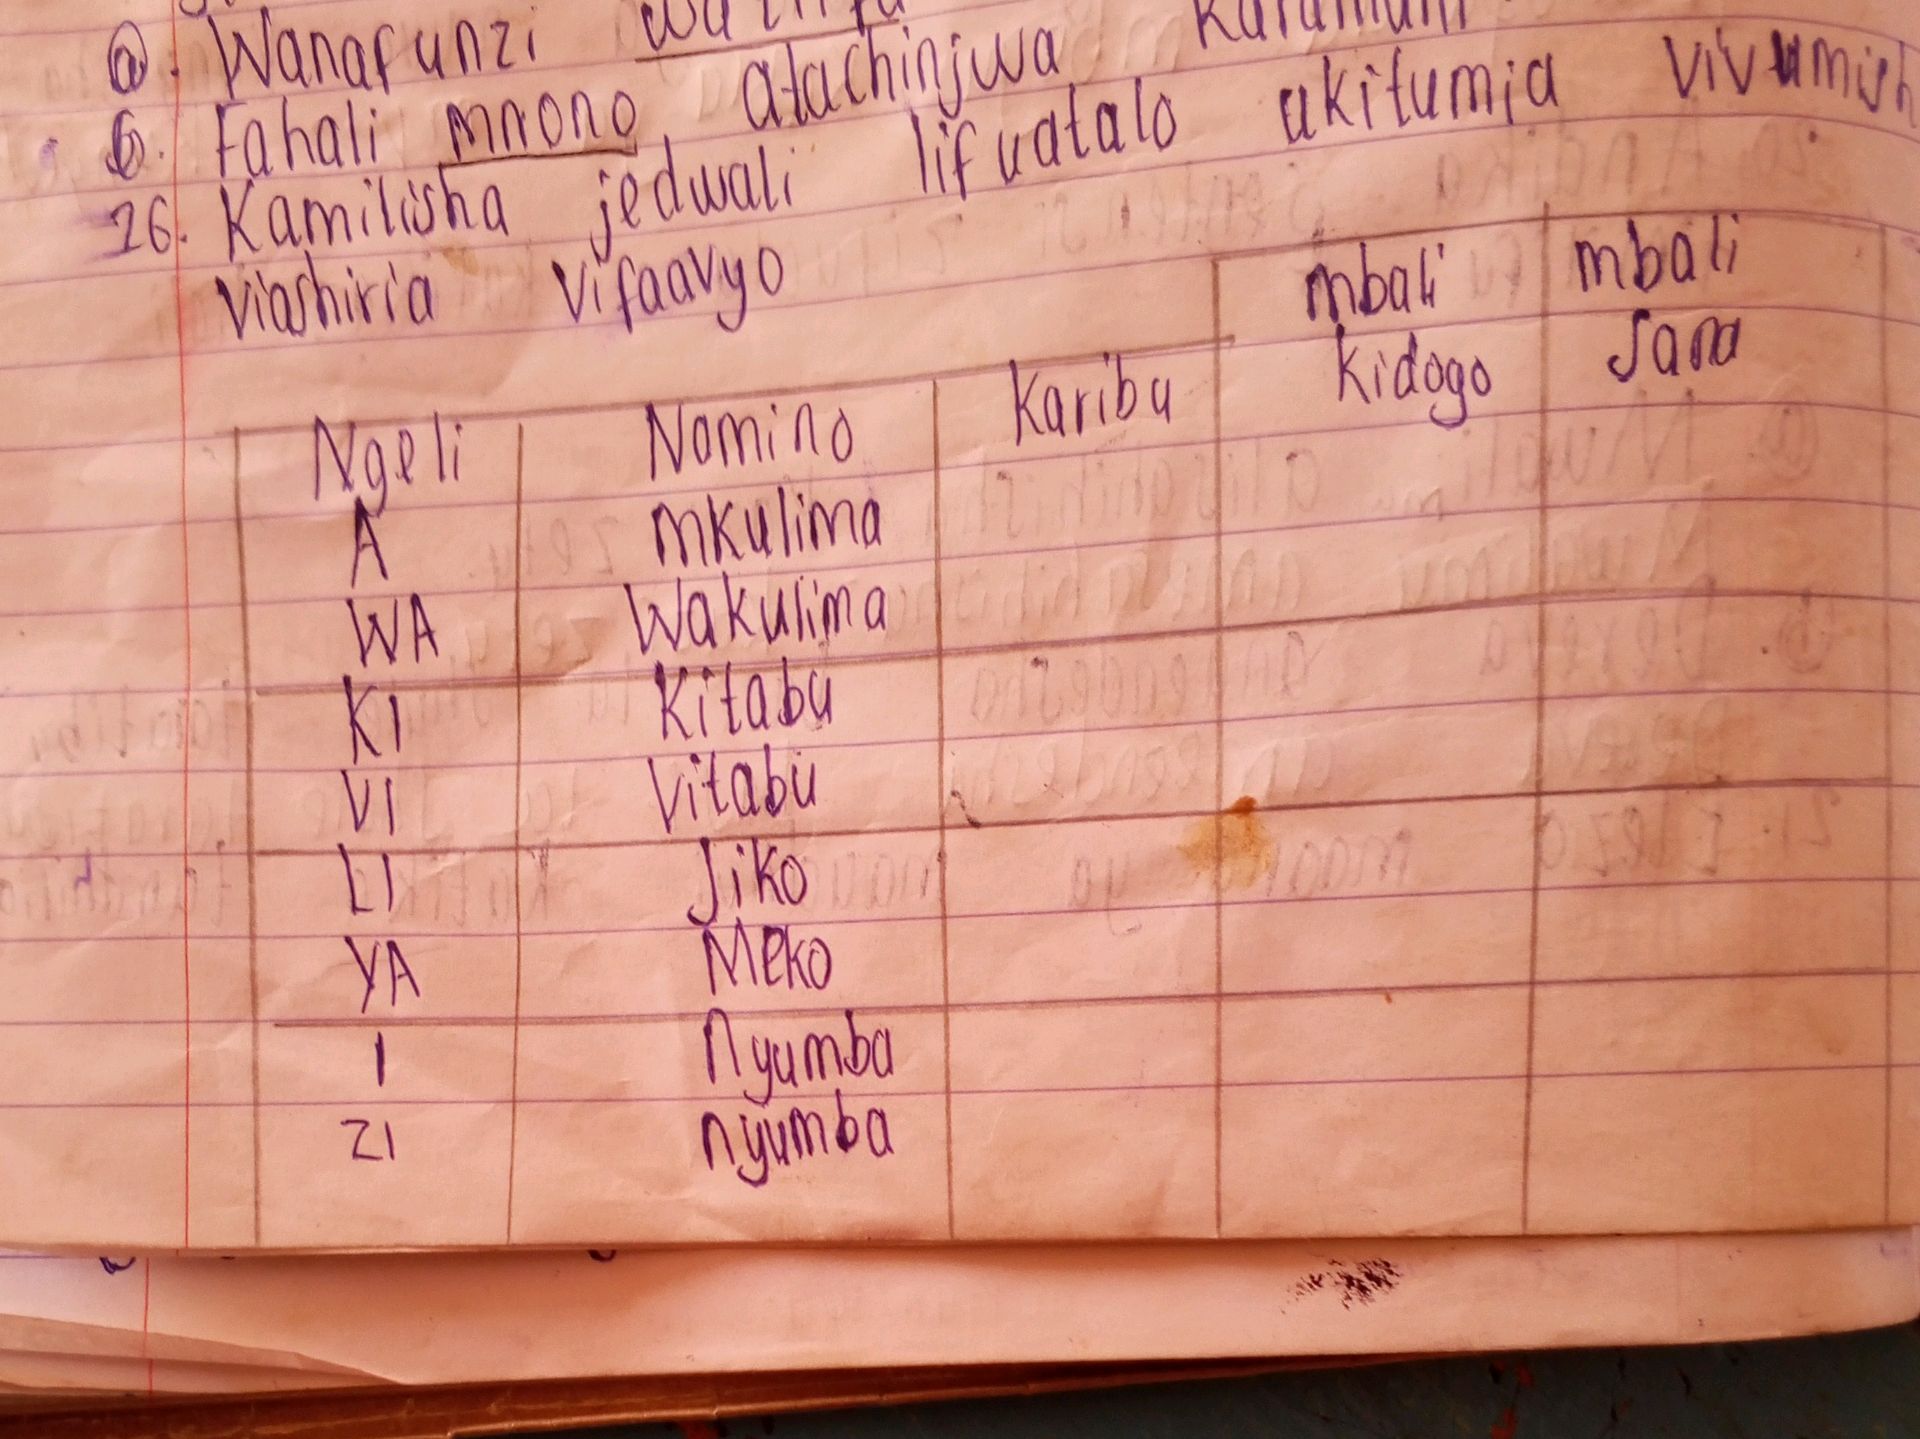 a. Wanafunzi
b. Fahali mnono atachinjwa
26. Kamilisha jedwali lifuatalo ukitumia
viashiria vifaavyo
Ngeli Nomino Karibu mbali kidogo mbali sana
A mkulima
WA Wakulima
KI Kitabu
VI Vitabu
LI Jiko
YA Meko
I Nyumba
ZI nyumba